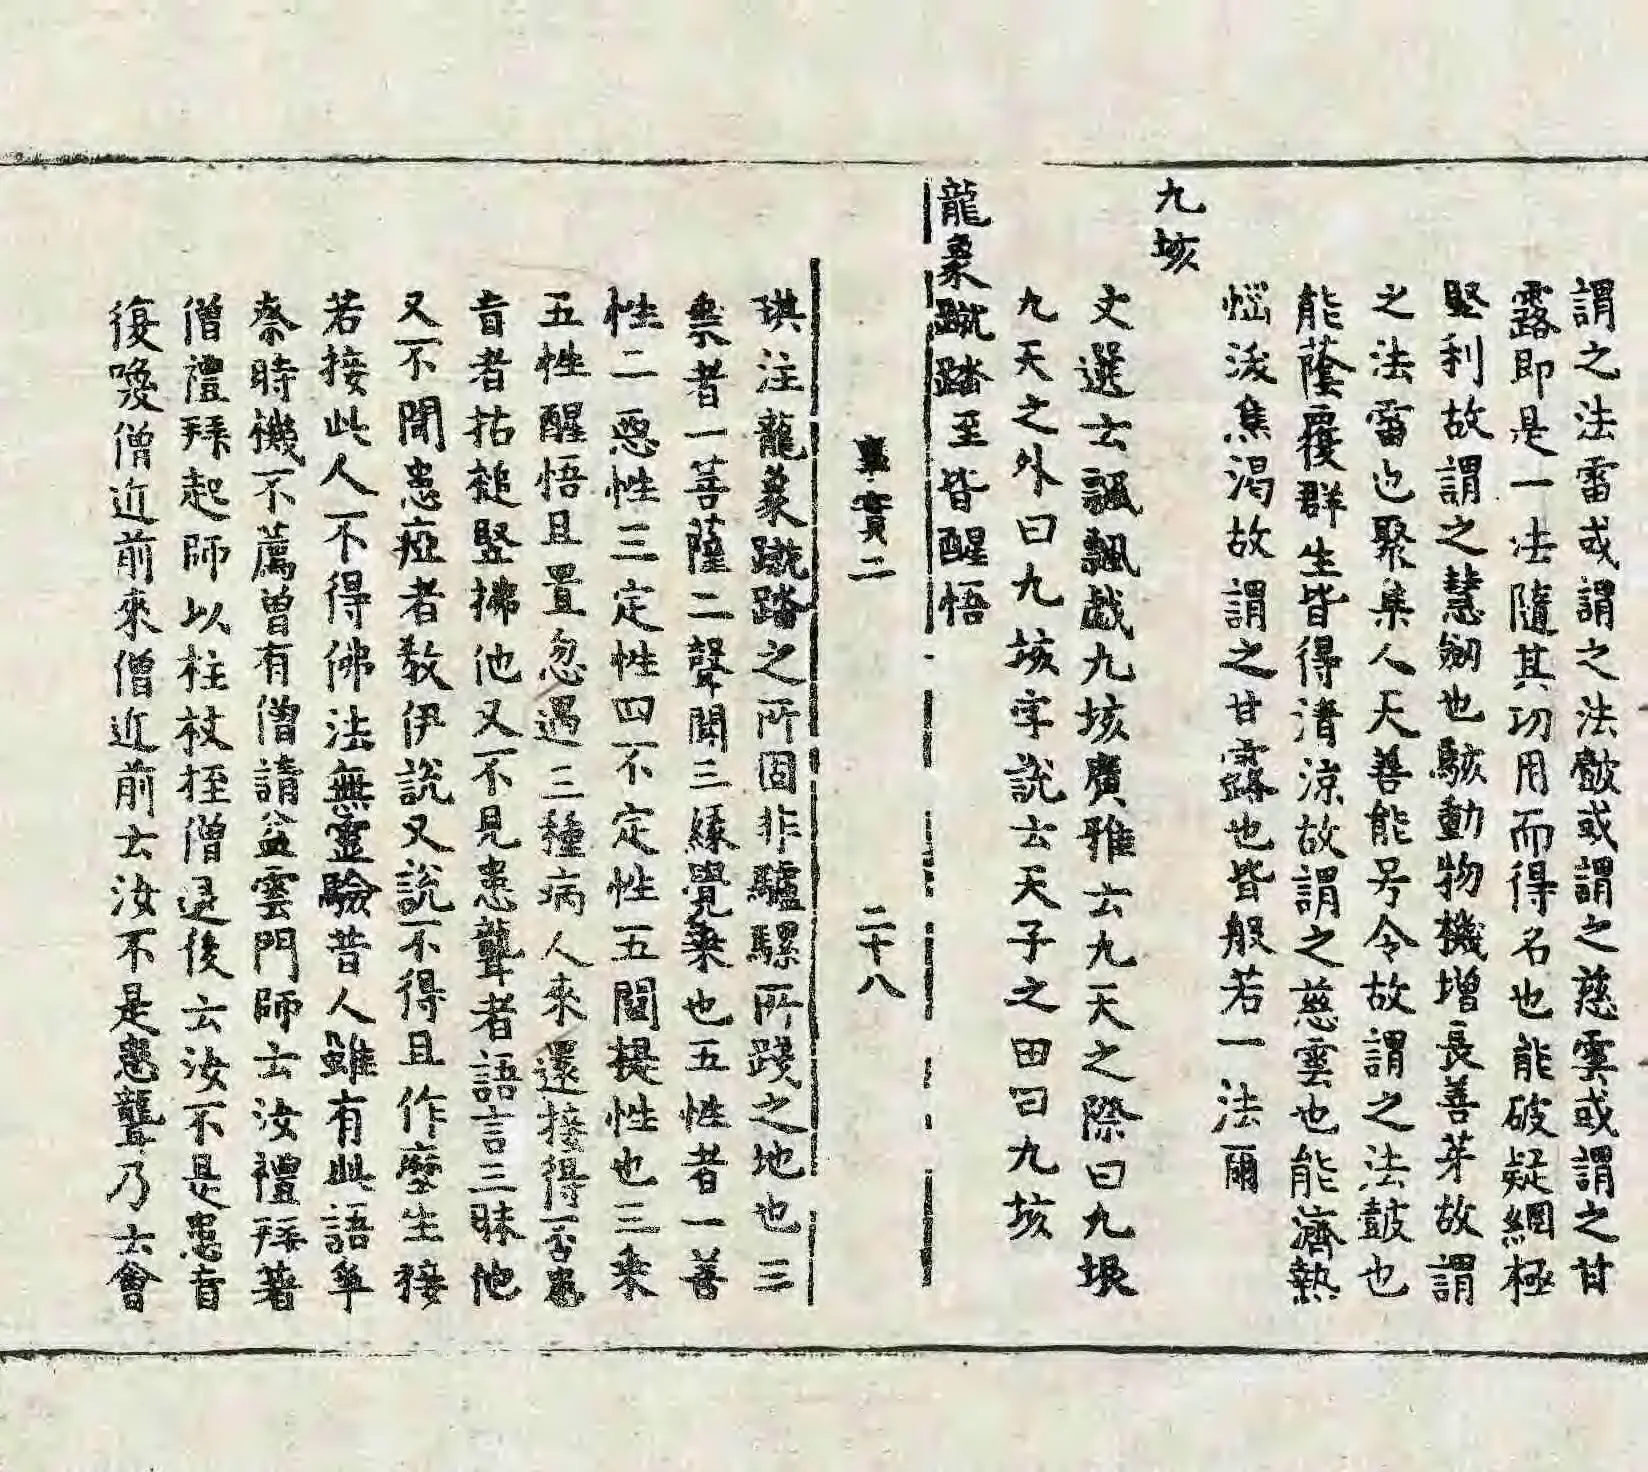 謂之法雷或謂之法鼓或謂之慈雲或謂之甘
露即是一法隨其功用而得名也能破疑網極
堅利故謂之慧劒也駭動物機增長善芽故謂
之法雷也聚集人天善能号令故謂之法鼓也
能蔭覆群生皆得清涼故謂之慈雲也能濟熱
惱泼焦渴故謂之甘露也皆般若一法爾
九垓
文選云諷諷戯九垓廣雅云九天之際曰九垠
九天之外曰九垓字說云天子之田曰九垓
龍象蹴踏至皆醒悟
事實二
二十八
琪注龍象蹴踏之所固非驢騾所踐之地也三
乘者一菩薩二聲聞三緣覺乘也五性者一善
性二惡性三定性四不定性五闡提性也三乘
五性醒悟且置忽遇三種病人來還接得否患
盲者拈槌竪拂他又不見患聾者語言三昧他
又不聞患瘂者教伊說又說不得且作麼生接
若接此人不得佛法無靈驗昔人雖有此語争
柰時機不薦曽有僧請益雲門師云汝禮拜著
僧禮拜起師以柱杖挃僧退後云汝不是患盲
復喚僧近前來僧近前云汝不是患聾乃云會